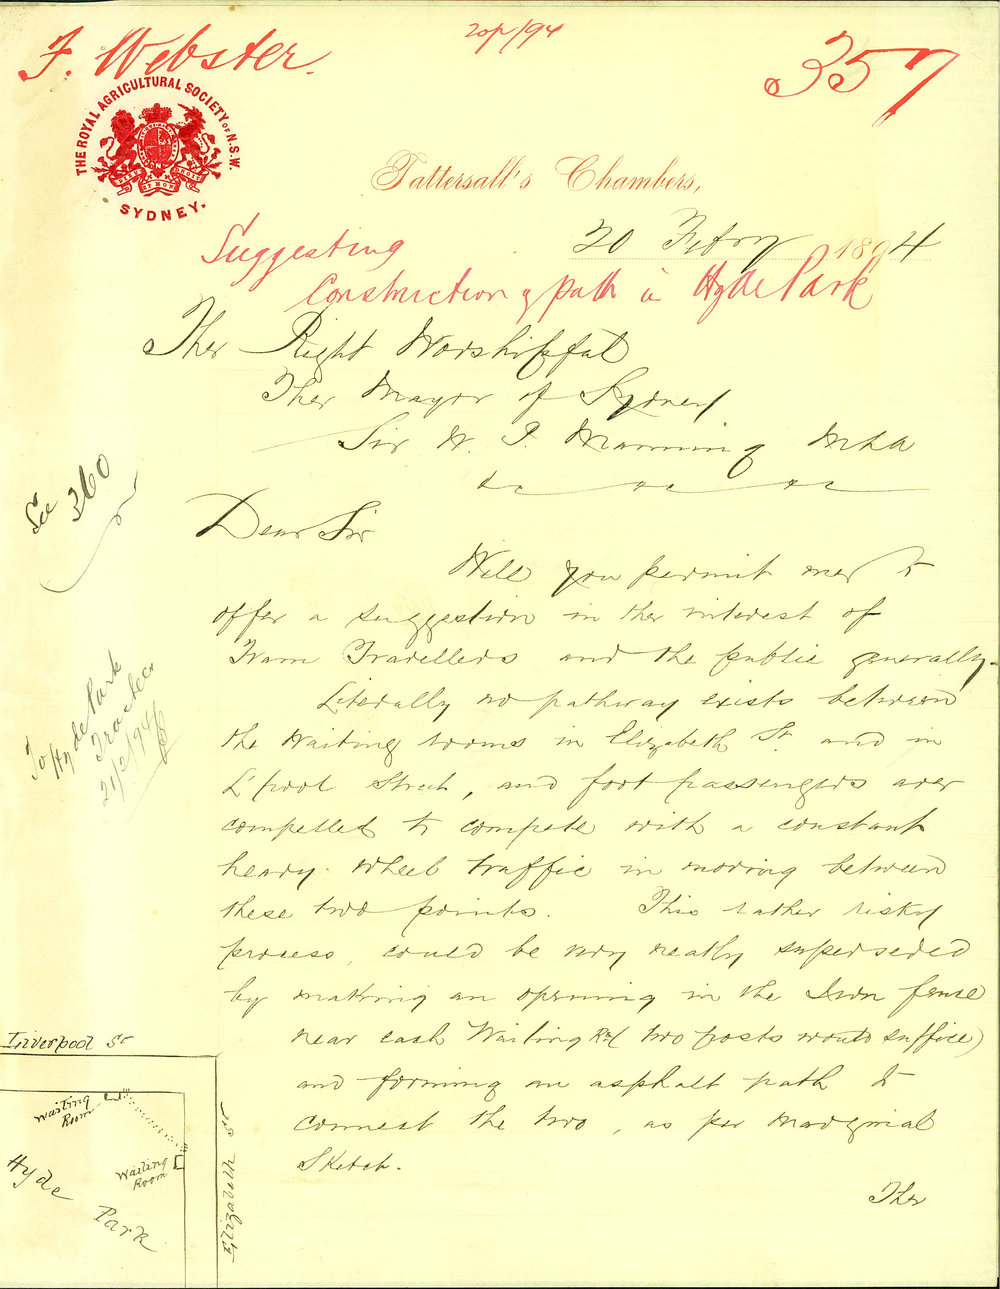 F. Webster.
20/2/94
357
THE ROYAL AGRICULTURAL SOCIETY OF N.S.W.
SYDNEY.
Tattersall's Chambers,
20 Febry 1894
Suggesting
Construction of path in Hyde Park
The Right Worshipful
The Mayor of Sydney
Sir W. P. Manning MLA
&c &c &c
See 360
Dear Sir
Will you permit me to
offer a suggestion in the interest of
Tram Travellers and the public generally-
Literally no pathway exists between
the Waiting rooms in Elizabeth St. and in
L'pool Street, and foot passengers are
compelled to compete with a constant
heavy wheel traffic in moving between
these two points. This rather risky
process, could be very neatly superseded
by making an opening in the Iron fence
near each Waiting Rm (two posts would suffice)
and forming an asphalt path to
connect the two, as per marginal
Sketch.
The
To Hyde Park
Trustees
21/2/94
Liverpool St
Waiting
Room
Waiting
Room
Hyde Park
Elizabeth St